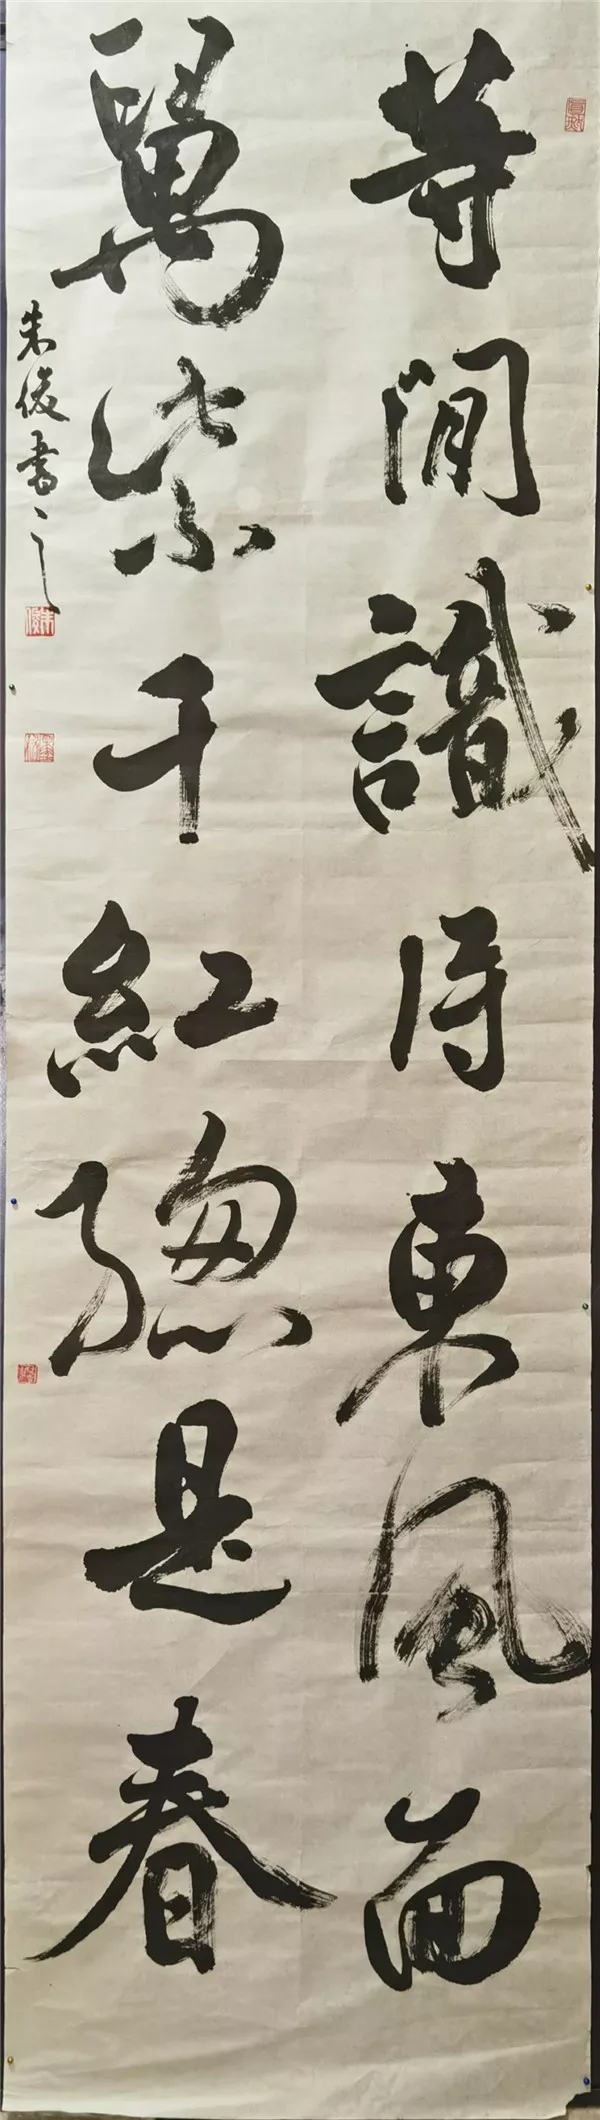 等閒識得東風面
萬紫千紅總是春
朱俊書之